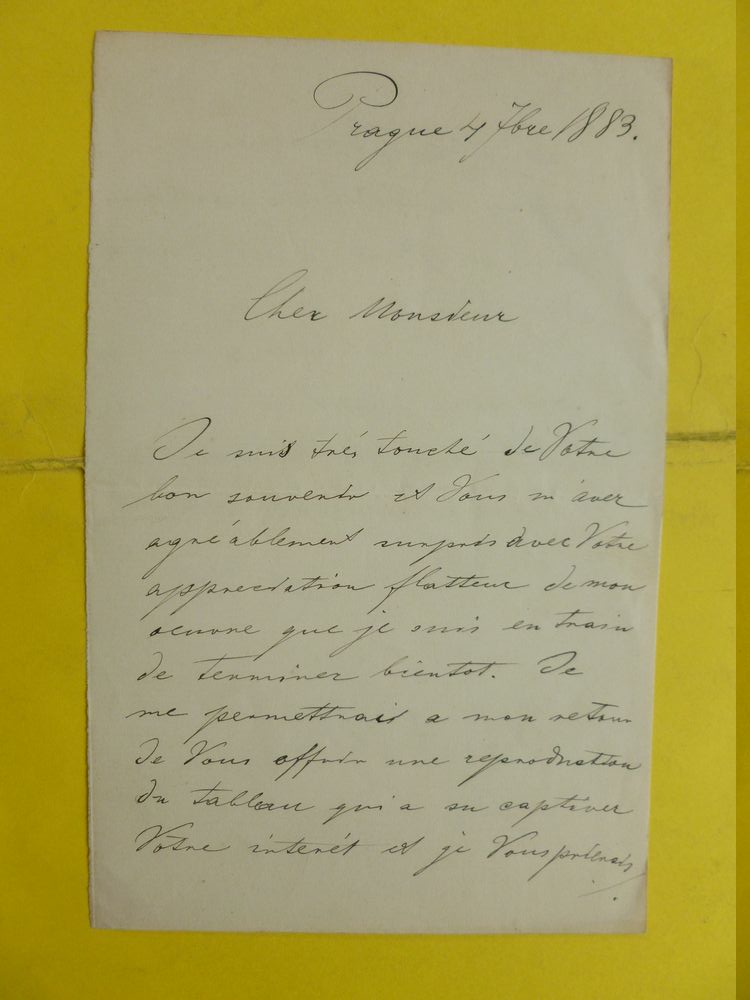 Prague 4 7bre 1883.
Cher Monsieur
Je suis trés touché de Votre
bon souvenir et Vous m'avez
agréablement surpris avec Votre
appreciation flatteur de mon
oeuvre que je suis en train
de terminer bientot. Je
me permettrais a mon retour
de Vous offrir une reproduction
du tableau qui a su captiver
Votre interét et je Vous prierais